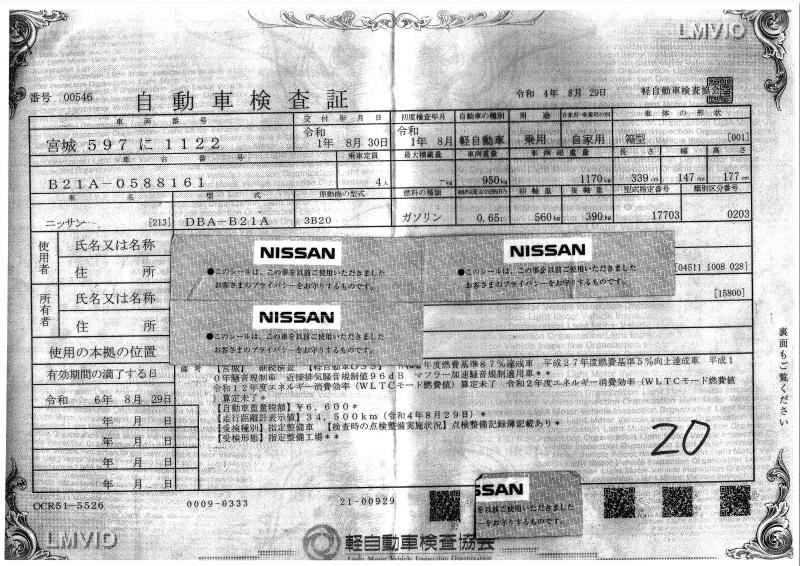 LMVIO
番号 00546
自動車検査証
令和 4年 8月 29日
軽自動車検査協会
車両番号 交付年月日 初度検査年月 自動車の種別 用途 自家用・事業用の別 車体の形状
宮城 597 に 1122 令和 1年 8月 30日 令和 1年 8月 軽自動車 乗用 自家用 箱型 [001]
車台番号 乗車定員 最大積載量 車両重量 車両総重量 長さ 幅 高さ
B21A-0588161 4人 -kg 950kg 1170kg 339cm 147cm 177cm
車名 型式 原動機の型式 燃料の種類 前軸重 後軸重 型式指定番号 類別区分番号
ニッサン [213] DBA-B21A 3B20 ガソリン 0.65ℓ 560kg 390kg 17703 0203
使用者 氏名又は名称
住所 [04511 1008 028]
所有者 氏名又は名称 [15800]
住所
NISSAN
●このシールは、この車を以前ご使用いただきました
お客さまのプライバシーをお守りするものです。
NISSAN
●このシールは、この車を以前ご使用いただきました
お客さまのプライバシーをお守りするものです。
NISSAN
●このシールは、この車を以前ご使用いただきました
お客さまのプライバシーをお守りするものです。
使用の本拠の位置
有効期間の満了する日
令和 6年 8月 29日
年 月 日
年 月 日
年 月 日
備考 【宮城】 継続検査 【軽自動車OSS】 年度燃費基準87%達成車 平成27年度燃費基準5%向上達成車 平成1
0年騒音規制車 近接排気騒音規制値96dB マフラー加速騒音規制適用車**
令和12年度エネルギー消費効率(WLTCモード燃費値)算定未了 令和2年度エネルギー消費効率(WLTCモード燃費値
)算定未了*
【自動車重量税額】¥6,600*
【走行距離計表示値】34,500km(令和4年8月29日)*
【受検種別】指定整備車 【検査時の点検整備実施状況】点検整備記録簿記載あり*
【受検形態】指定整備工場**
20
裏面もご覧ください
OCR51-5526 0009-0333 21-00929
SSAN
を以前ご使用いただきました
ーをお守りするものです。
LMVIO
軽自動車検査協会
Light Motor Vehicle Inspection Organization